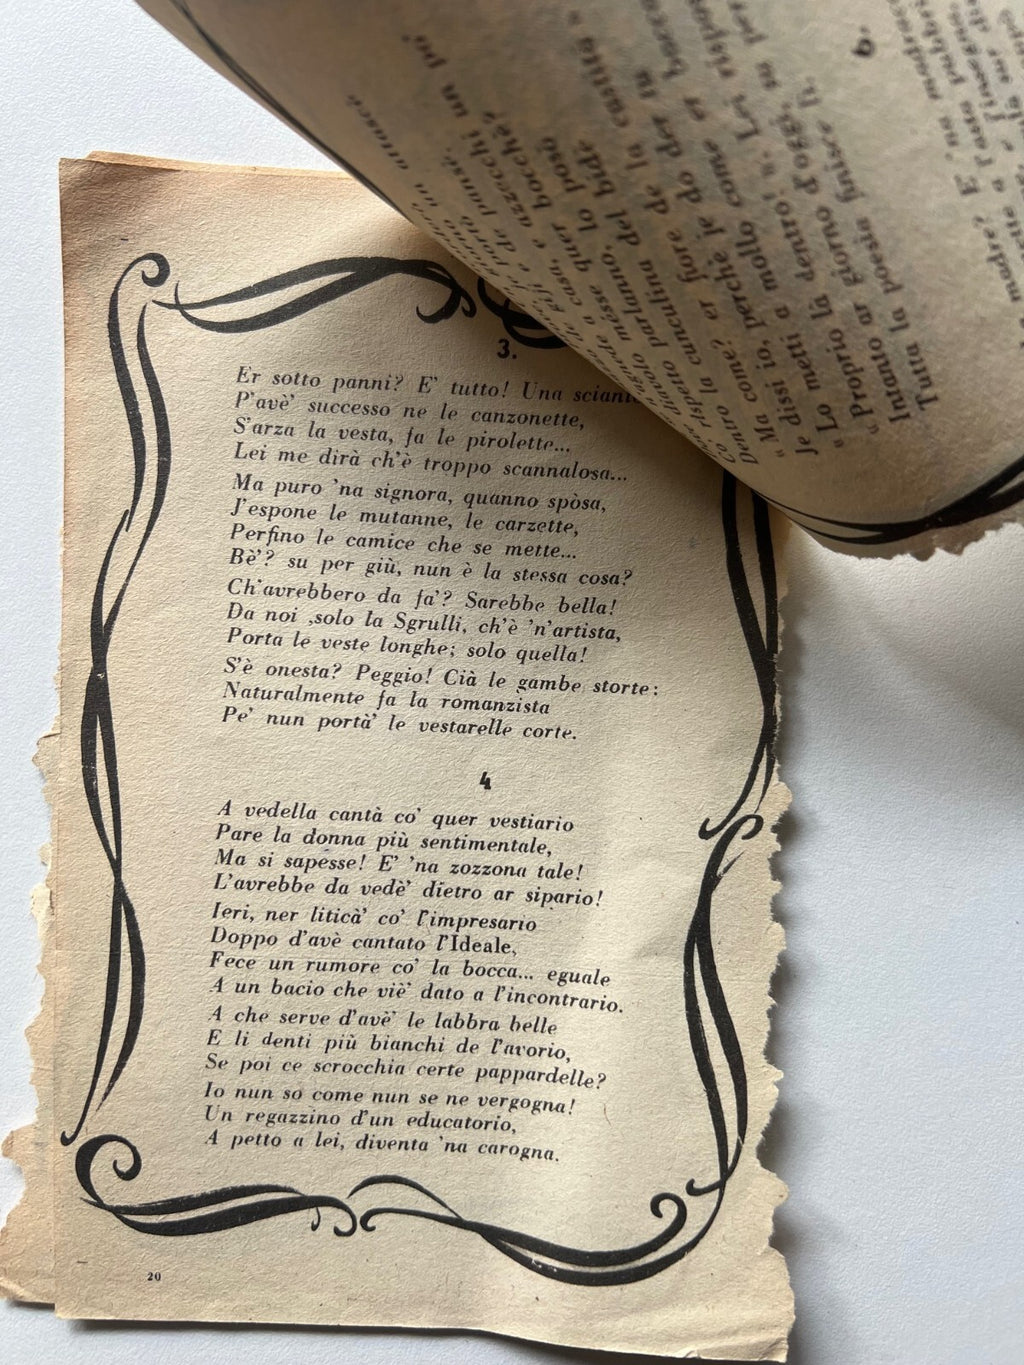 3.
Er sotto panni? E' tutto! Una
P'avè' successo ne le canzonette,
S'arza la vesta, fa le pirolette...
Lei me dirà ch'è troppo scannalosa...
Ma puro 'na signora, quanno spòsa,
J'espone le mutanne, le carzette,
Perfino le camice che se mette...
Bè'? su per giù, nun è la stessa cosa?
Ch'avrebbero da fa'? Sarebbe bella!
Da noi ,solo la Sgrulli, ch'è 'n'artista,
Porta le veste longhe; solo quella!
S'è onesta? Peggio! Cià le gambe storte:
Naturalmente fa la romanzista
Pe' nun portà' le vestarelle corte.
4
A vedella cantà co' quer vestiario
Pare la donna più sentimentale,
Ma si sapesse! E' 'na zozzona tale!
L'avrebbe da vedè' dietro ar sipario!
Ieri, ner liticà' co' l'impresario
Doppo d'avè cantato l'Ideale,
Fece un rumore co' la bocca... eguale
A un bacio che viè' dato a l'incontrario.
A che serve d'avè' le labbra belle
E li denti più bianchi de l'avorio,
Se poi ce scrocchia certe pappardelle?
Io nun so come nun se ne vergogna!
Un regazzino d'un educatorio,
A petto a lei, diventa 'na carogna.
20
un po'
e azzecchi
quer bocchè?
lo posò
Co' rispetto parlanno, bide
Dentro la cunculina del
« Ma come? er fiore de la castità »
Je dissi io, perchè je do der tu
« Lo metti a mollo come er
« Proprio là dentro! ». La
Intanto ar giorno d'oggi, su per
Tutta la poesia finisce lì.
6.
madre? E' 'na